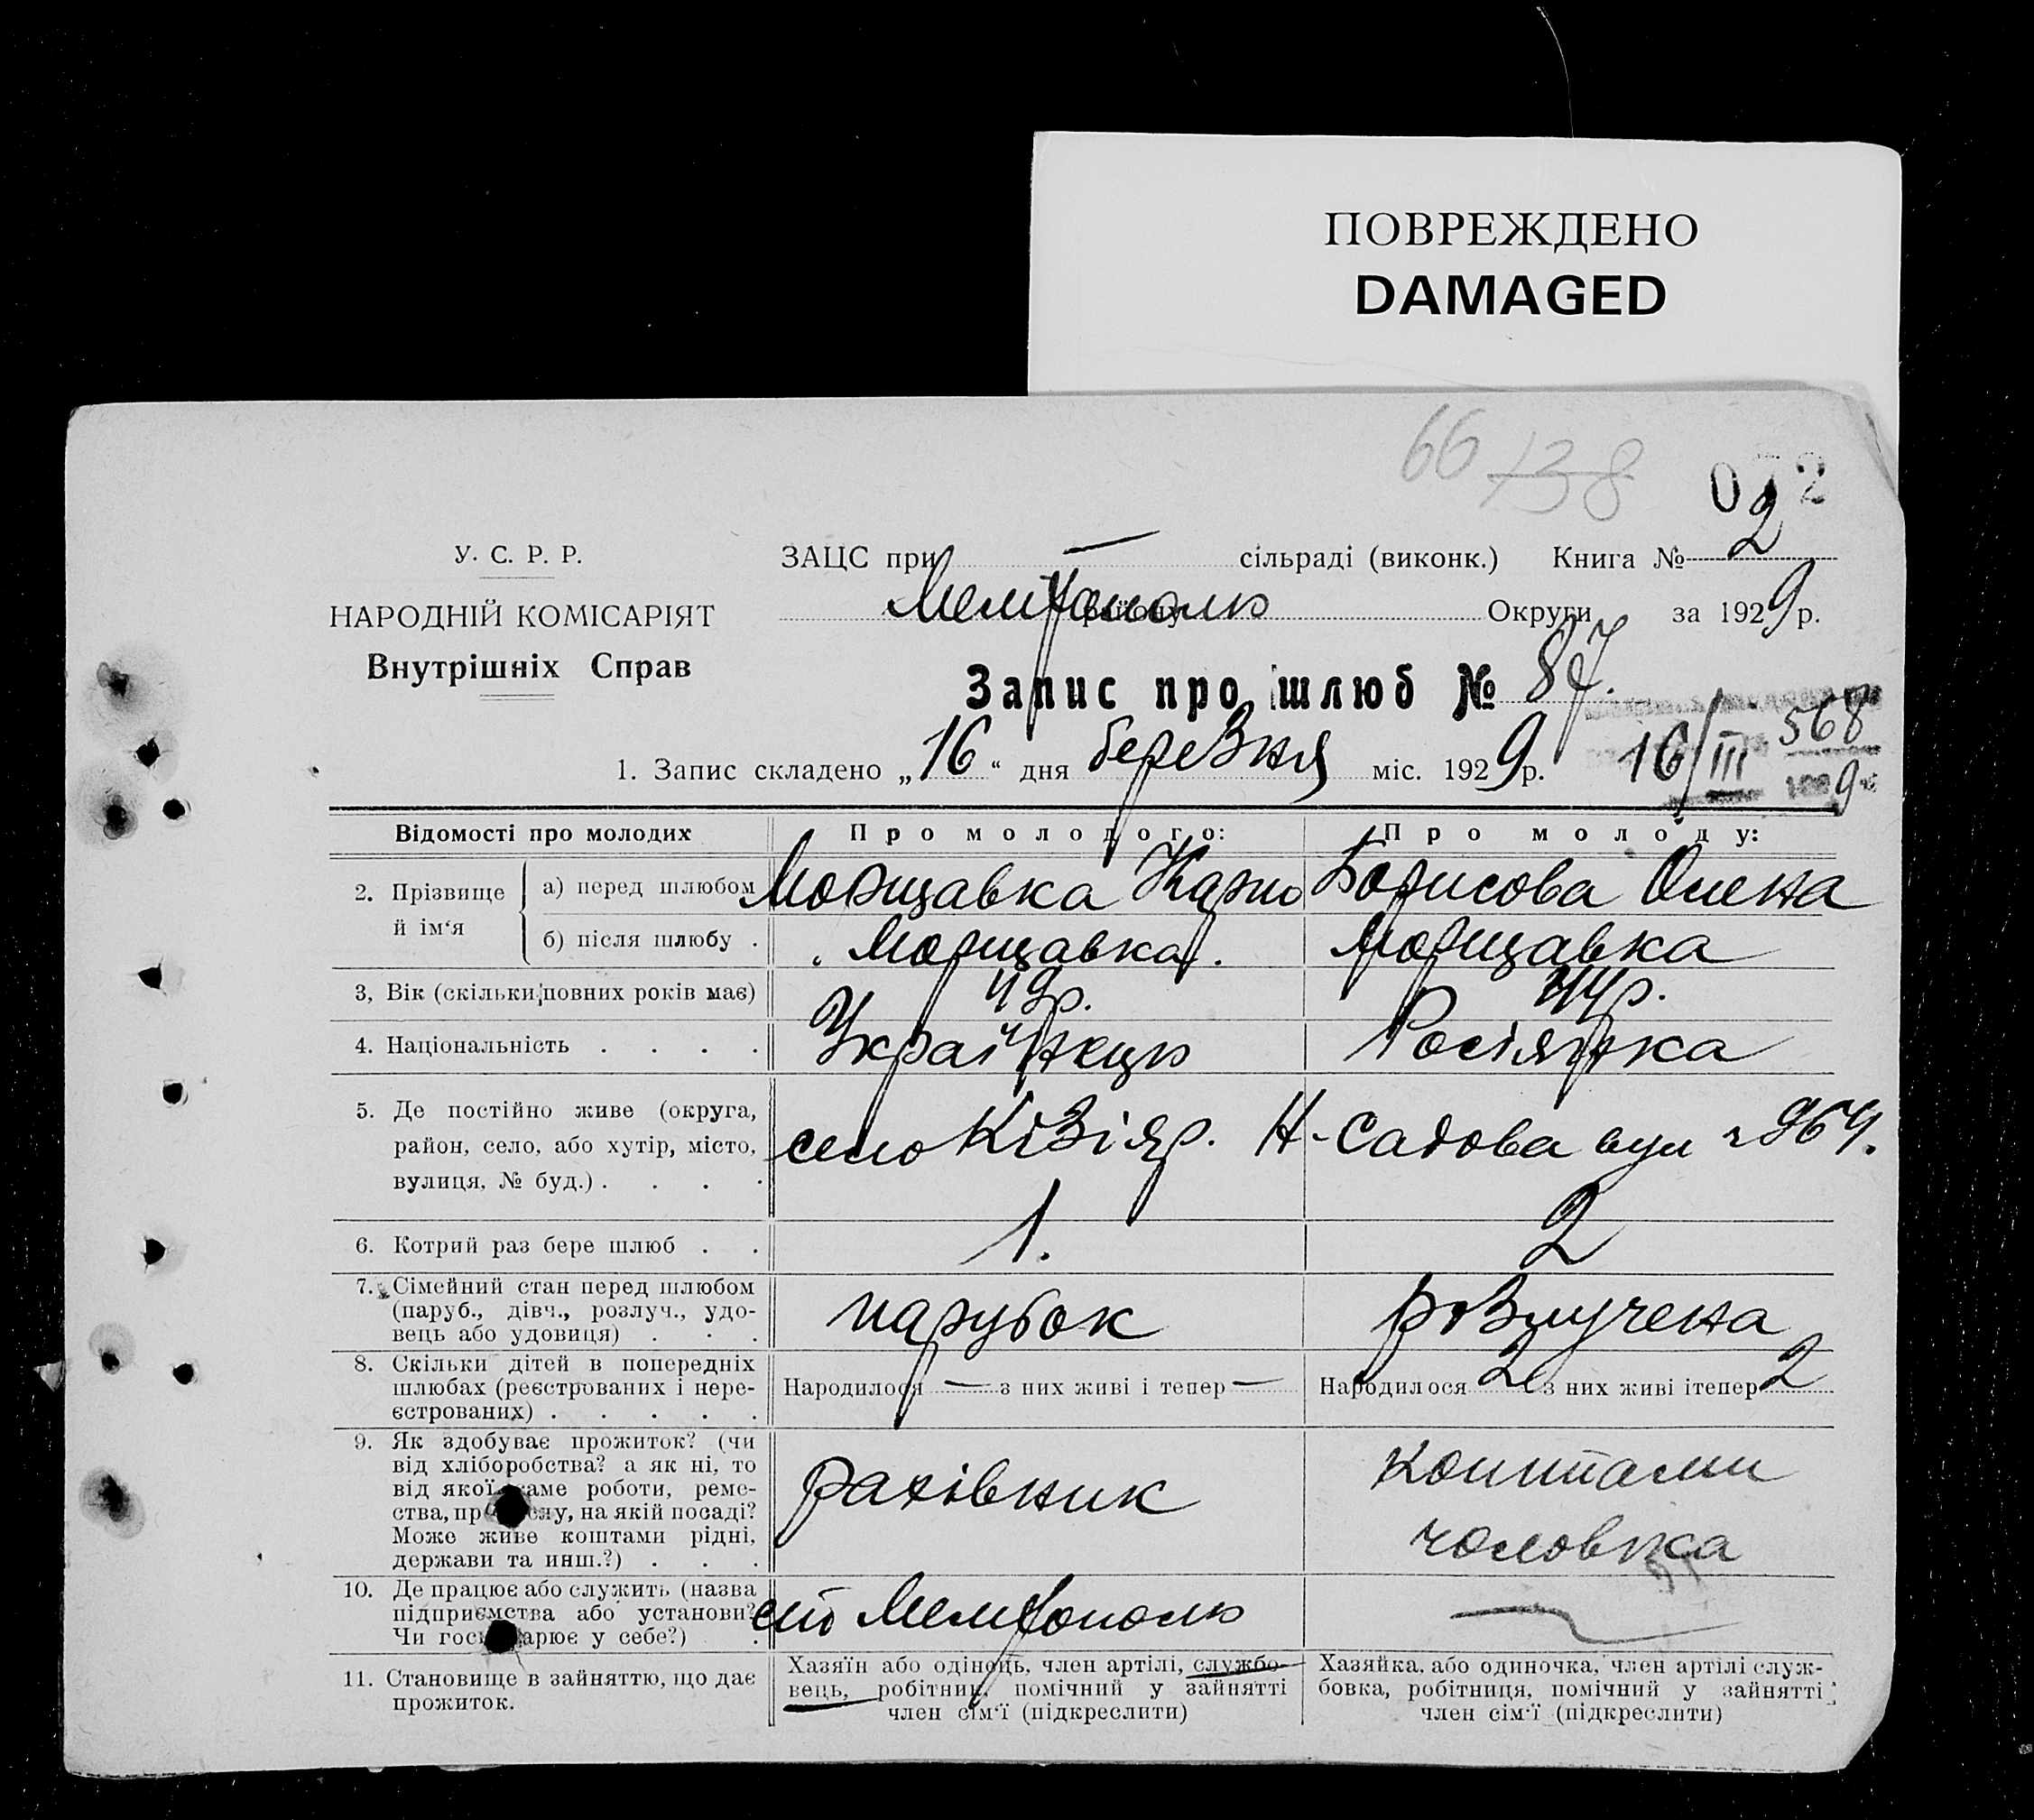 ПОВРЕЖДЕНО
DAMAGED
66 138
2
У. С. Р. Р.
НАРОДНІЙ КОМІСАРІЯТ
Внутрішніх Справ
ЗАЦС при — сільраді (виконк.) Книга № 2
Мелітополь району Округи за 1929 р.
Запис про шлюб № 87.
568
1. Запис складено „16“ дня березня міс. 1929 р. 16/III 9
Відомості про молодих Про молодого: Про молоду:
2. Прізвище й ім‘я а) перед шлюбом Морщавка Карпо Борисова Олена
б) після шлюбу . Морщавка. Морщавка
3, Вік (скільки повних років має) 49р. 44р.
4. Національність . . . . Українець Росіянка
5. Де постійно живе (округа,
район, село, або хутір, місто,
вулиця, № буд.) . . . .
село Кізіяр. Н-Садова вул 964.
6. Котрий раз бере шлюб . . 1. 2
7. Сімейний стан перед шлюбом
(паруб., дівч., розлуч., удо-
вець або удовиця) . . .
парубок розлучена
8. Скільки дітей в попередніх
шлюбах (реєстрованих і нере-
єстрованих) . . . . .
Народилося — з них живі і тепер — Народилося 2 з них живі ітепер 2
9. Як здобуває прожиток? (чи
від хліборобства? а як ні, то
від якої саме роботи, реме-
ства, промислу, на якій посаді?
Може живе коштами рідні,
держави та инш.?) . . .
рахівник
коштами
чоловіка
10. Де працює або служить (назва
підприємства або установи?
Чи господарює у себе?) .
ст Мелітополь —
11. Становище в зайняттю, що дає
прожиток.
Хазяїн або одінець, член артілі, службо-
вець, робітник, помічний у зайнятті
член сім‘ї (підкреслити)
Хазяйка, або одиночка, член артілі служ-
бовка, робітниця, помічний у зайнятті
член сім‘ї (підкреслити)